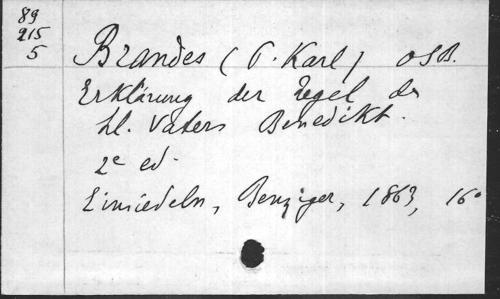 89
215
5
Brandes (P. Karl) OSB.
Erklärung der Regel des
hl. Vaters Benedikt.
2e ed.
Einsiedeln, Benziger, 1863, 16°